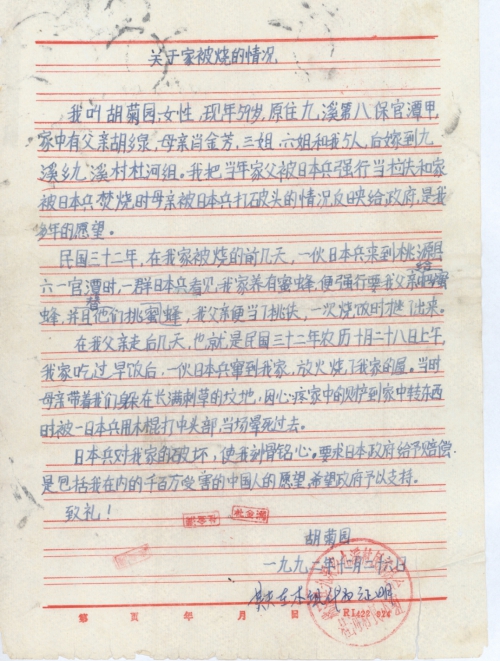 关于家被烧的情况
我叫胡菊园,女性,现年59岁,原住九溪第八保官潭甲,
家中有父亲胡绿,母亲肖金芳,三姐、六姐和我5人,后嫁到九
溪乡九溪村杜河组。我把当年家父被日本兵强行当拉夫和家
被日本兵焚烧时母亲被日本兵打破头的情况反映给政府,是我
多年的愿望。
民国三十二年,在我家被烧的前几天,一伙日本兵来到桃源县
六一官潭时,一群日本兵看见我家养有蜜蜂,便强行要我父亲蜜
蜂,并且他们挑蜜蜂,我父亲便当了挑伕,一次烧饭时才出来。
在我父亲走后几天,也就是民国三十二年农历十月二十八日上午,
我家吃过早饭后,一伙日本兵窜到我家,放火烧了我家的屋。当时
母亲带着我们躲在长满刺草的坟地,因心疼家中的财产到家中转东西
时被一日本兵用木棍打中头部,当场晕死过去。
日本兵对我家的破坏,使我刻骨铭心。要求日本政府给予赔偿
是包括我在内的千百万受害的中国人的愿望,希望政府予以支持。
致礼!
胡菊园
一九九二年十二月二十六日
证明
第 页 年 月 日 R1422